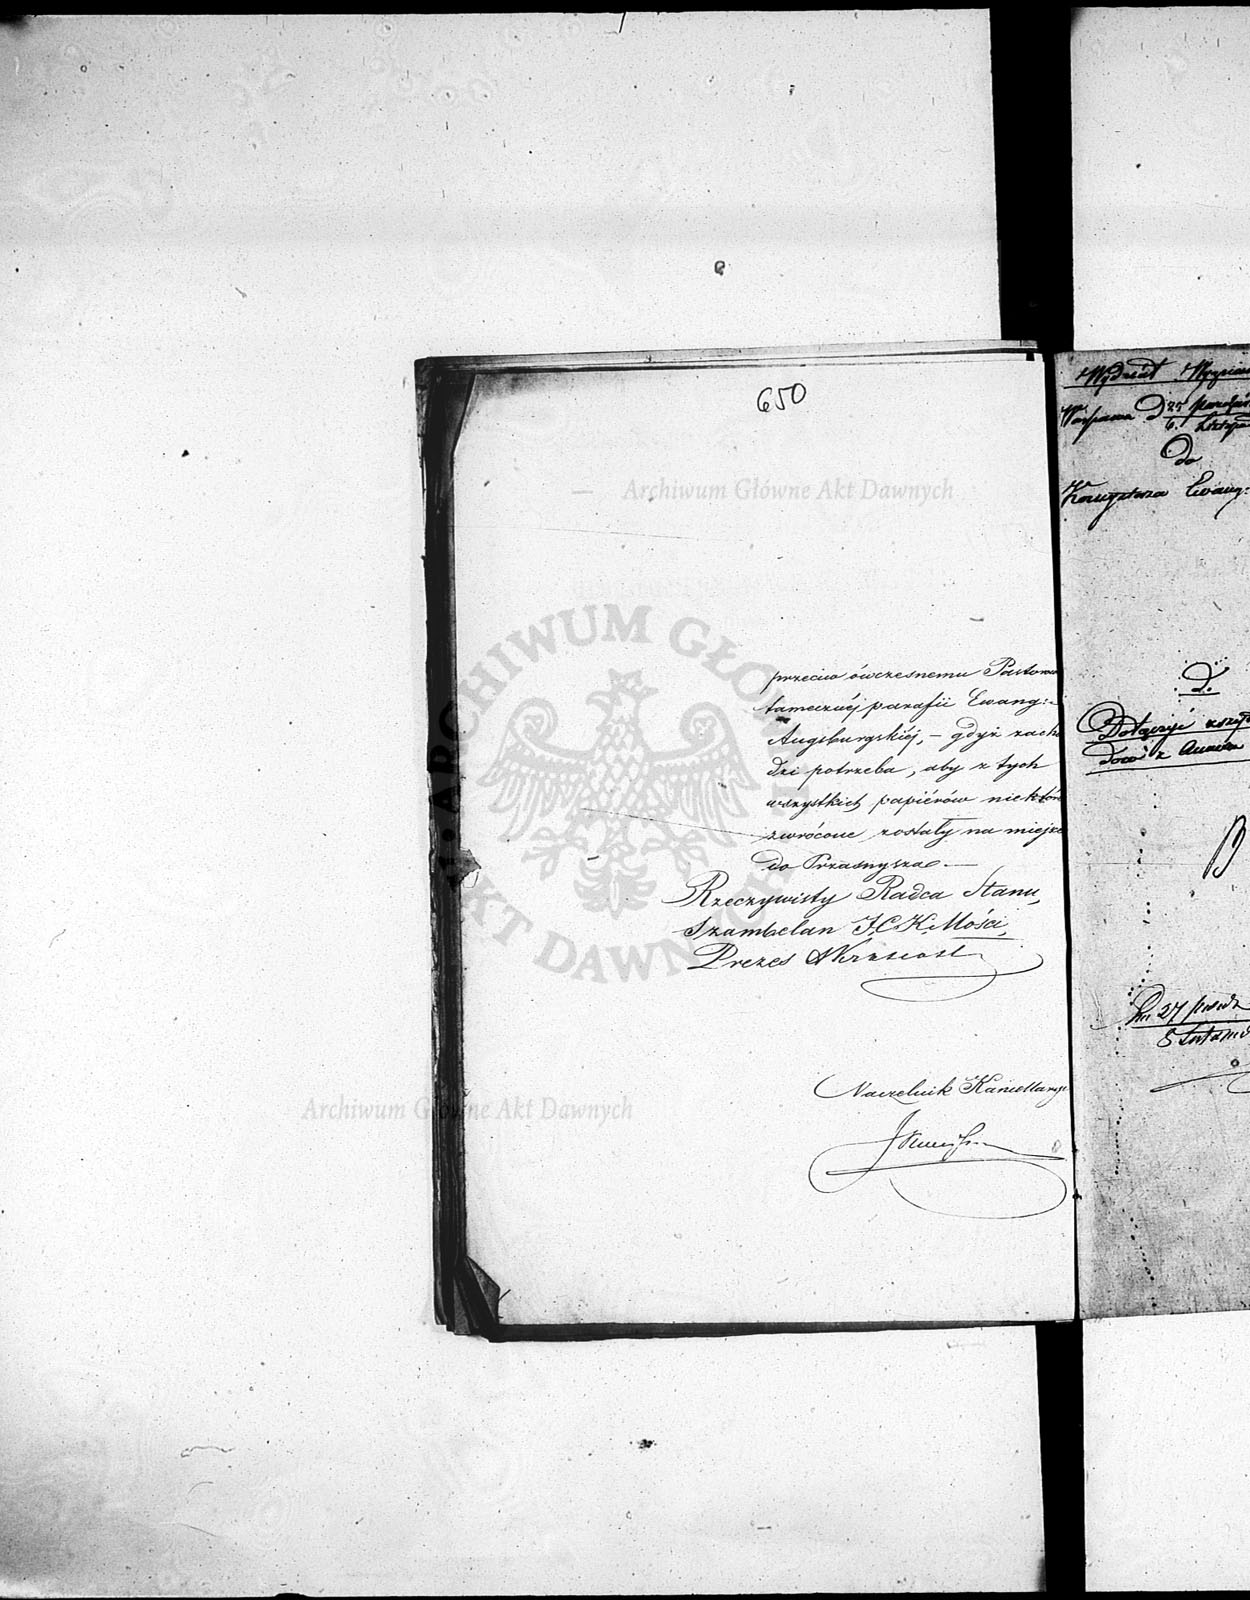 650
Archiwum Główne Akt Dawnych
ARCHIWUM GŁÓWNE AKT DAWNYCH
przeciw ówczesnemu Pastorow
tameczney parafii Ewang:
Augsburgskiéj, – gdyż zacho
dzi potrzeba, aby z tych
wszystkich papiérów niektór
zwrócone zostały na miejsc
do Przasnysza. —
Rzeczywisty Radca Stanu,
Szambelan J.C.K. Mości,
Prezes
Naczelnik Kancellaryi
Archiwum Główne Akt Dawnych
Wydział
Warszawa d 25
6. Listopad
do
Konsystorza Ewang:
D.
Dołączyć
dow z
27
8 Listopad